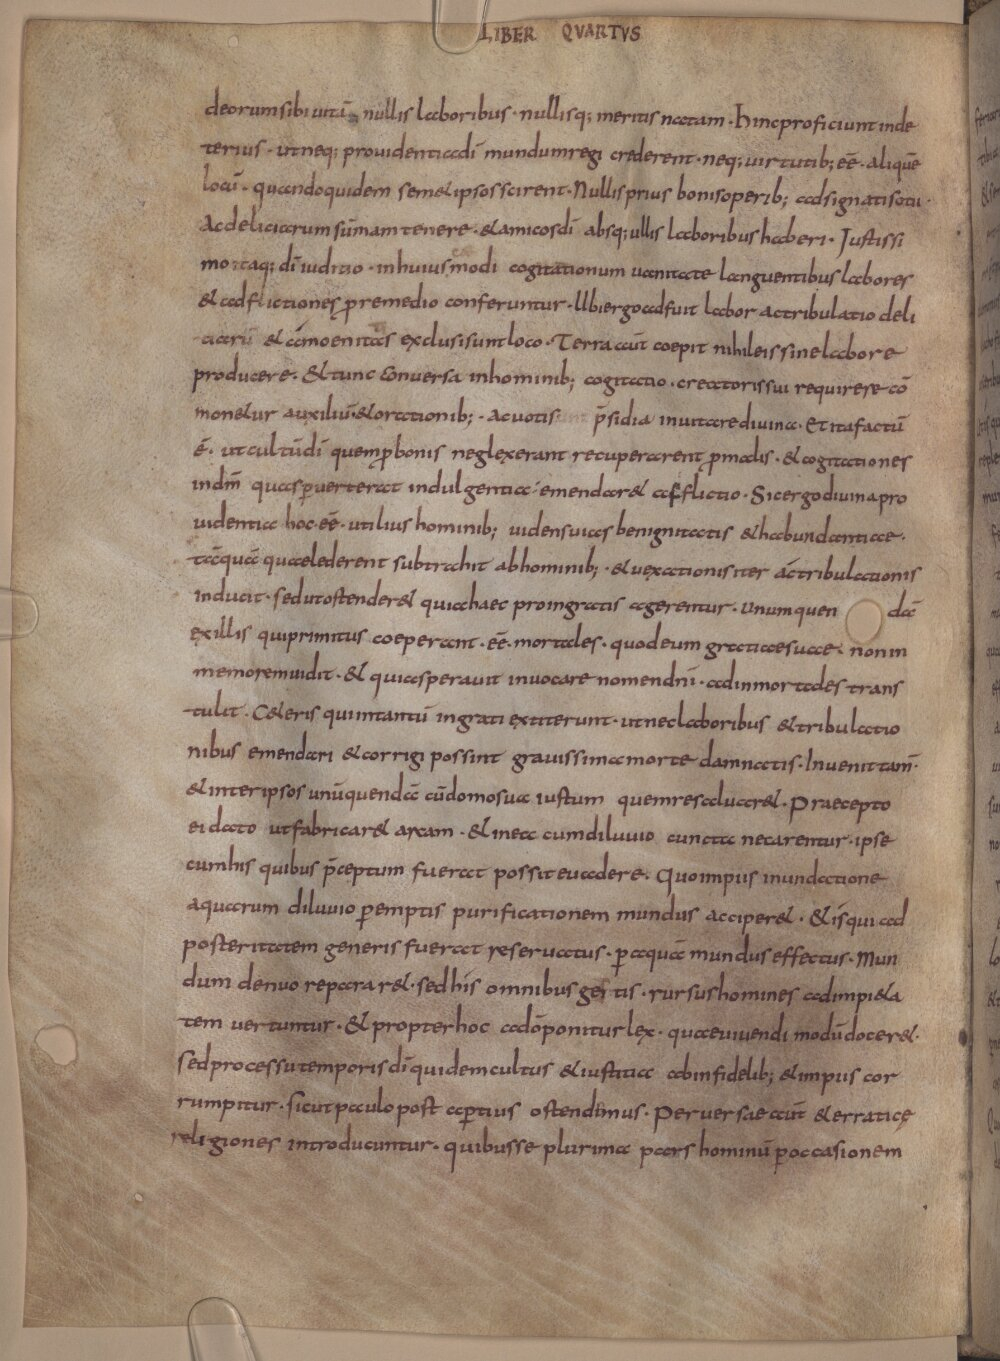 LIBER QVARTVS
deorum sibi uitā nullis laboribus · nullisq; meritis natam · Hinc proficiunt inde
terius · ut neq; prouidentia dī mundum regi crederent · neq; uirtutib; eē · aliquē
locū · quandoquidem semel ipsos scirent · Nullis prius bonis operib; ad signati sotu
Ac deliciarum sūmam tenere · & amicos dī absq; ullis laboribus haberi · Justissi
motaq; dī iuditio · in huiusmodi cogitationum uanitate languentibus labores
& adflictiones p remedio conferuntur · Ubi ergo adfuit labor ac tribulatio deli
ciarū & āmoenitas exclusi sunt loco · Terra aūt coepit nihil eis sine labore
producere · & tunc conuersa in hominib; cogitatio · creatoris sui requirere cō
mon&ur auxiliū · & orationib; · ac uotis p̄sidia inuitare diuina · Et ita factū
ē · ut cultū dī quem p bonis neglexerant recuperarent p malis · & cogitationes
in dm̄ quas puerterat indulgentia · emendar& afflictio · Sic ergo diuina pro
uidentia hoc eē · utilius hominib; uidens uias benignitatis & habundantiae ·
tāquā quae lederent subtrahit ab hominib; · & uexationis iter āc tribulationis
inducit · sed ut ostender& quia haec pro ingratis agerentur · Unum quen dā
ex illis qui primitus coeperant · eē · mortales · quod eum gratiae suae non in
memorem uidit · & quia sperauit inuocare nomen dn̄i · ad inmortales trans
tulit · C&eris qui in tantū ingrati extiterunt · ut nec laboribus & tribulatio
nibus emendari & corrigi possint grauissima morte damnatis · Inuenit tam̄ ·
& inter ipsos unūquendā cū domo sua iustum quem resaduar& · Praecepto
ei dato ut fabricar& arcam · & in ea cum diluuio cuncta necarentur · ipse
cum his quibus p̄ceptum fuerat possit euadere · Quo impiis inundatione
aquarum diluuio pemptis purificationem mundus acciper& · & is qui ad
posteritatem generis fuerat reseruatus · p aquā mundus effectus · Mun
dum denuo reparar& · sed his omnibus gestis · rursus homines ad impi&a
tem uertuntur · & propter hoc adōponitur lex · quae uiuendi modū docer& ·
sed processu temporis dī quidem cultus & iustitia ab infidelib; & impiis cor
rumpitur · sicut paulo post aptius ostendimus · Peruersae aūt & erratice
religiones introducuntur · quibus se plurima pars hominū p occasionem